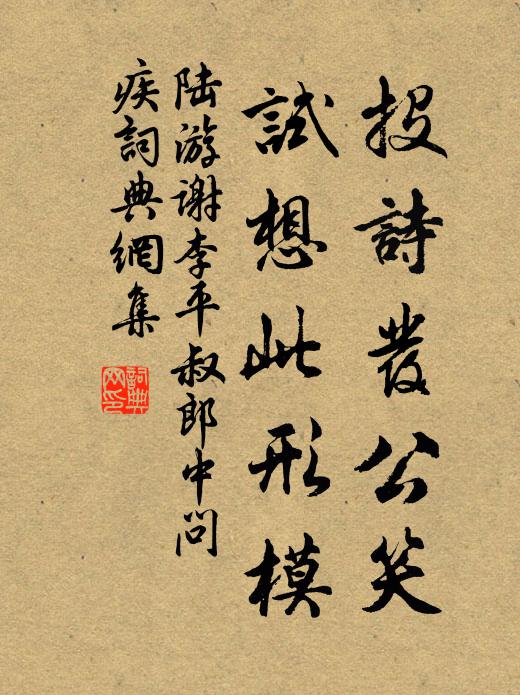 投詩發公笑
試想此形模
陸游謝李平叔郎中問
疾詞典網集
詞典
网印